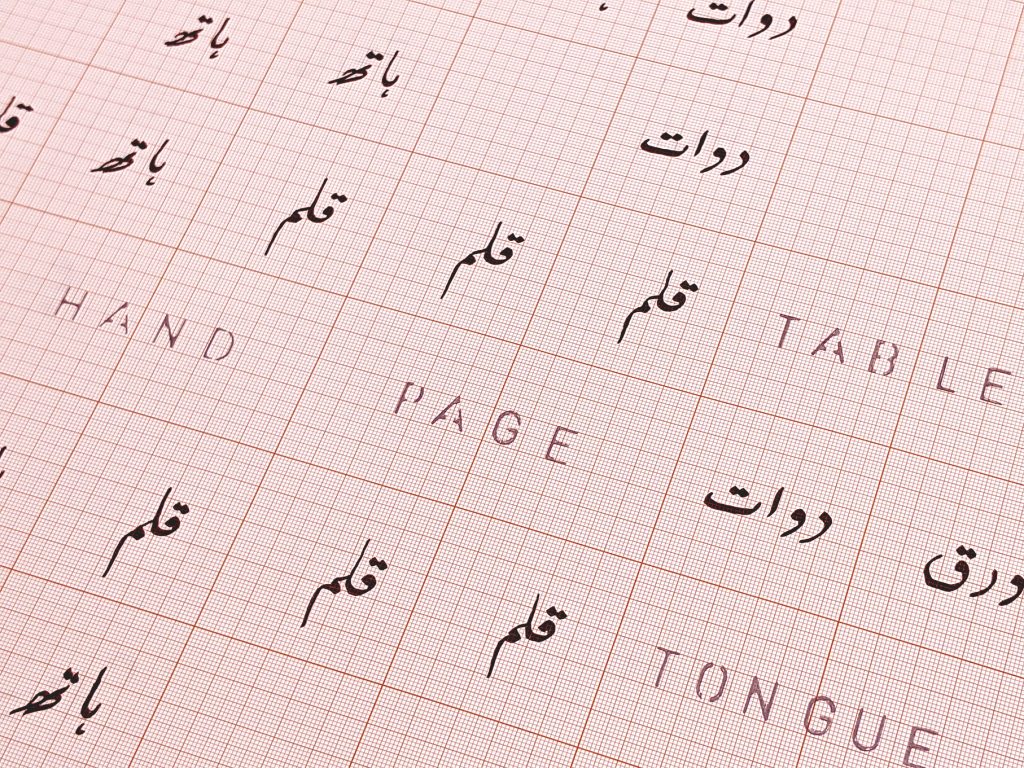 دوات
دوات ہاتھ ہاتھ
TABLE قلم قلم قلم ہاتھ
ورق دوات PAGE HAND
TONGUE قلم قلم قلم
ہاتھ